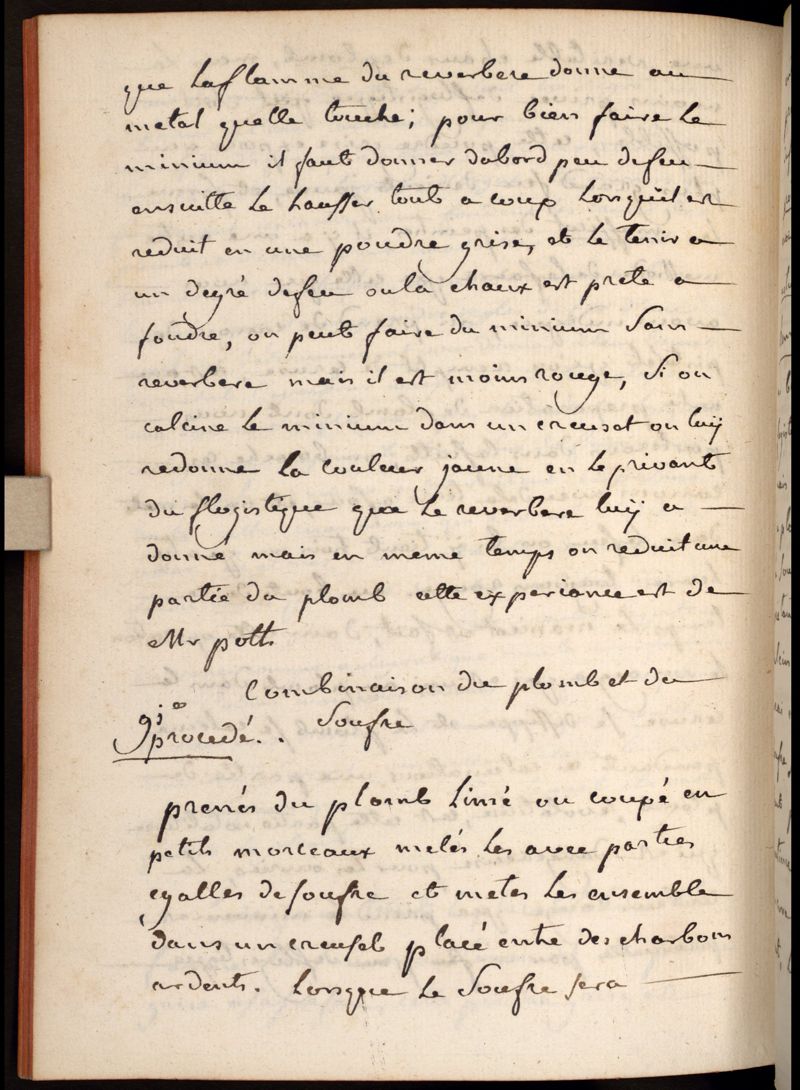 que la flamme du reverbere donne au
metal quelle touche; pour bien faire le
minium il faut donner dabord peu defeu
ensuitte le hausser tout a coup lorsquil est
reduit en une poudre grise, et le tenir a
un degré defeu oula chaux est prete a
foudre, on peut faire du minium sans
reverbere mais il est moins rouge, si on
calcine le minium dans un creuset on luy
redonne la couleur jaune en le privant
du flogistique que le reverbere luy a
donné mais en meme temps on reduit une
partie du plomb cette experiance est de
Mr pott
Combinaison du plomb et du
soufre
procedé.
prenés du plomb limé ou coupé en
petits morceaux melés les avec parties
egalles desoufre et metes les ensemble
dans un creuset placé entre des charbons
ardents. lorsque le soufre sera